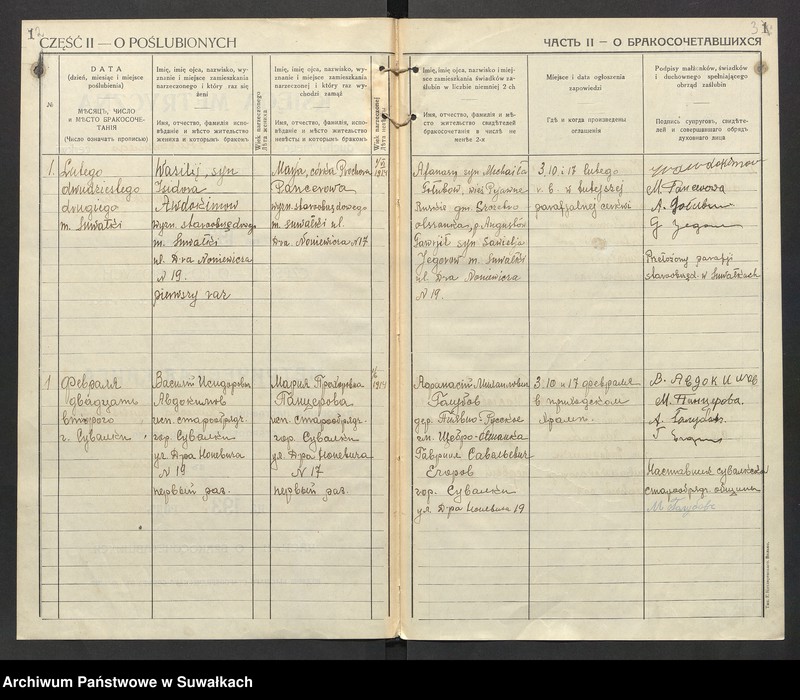 1
CZĘŚĆ II — O POŚLUBIONYCH
DATA
(dzień, miesiąc i miejsce
poślubienia)
МѢСЯЦЪ, ЧИСЛО
и МѢСТО БРАКОСОЧЕ-
ТАНІЯ
(Число означать прописью)
№
Imię, imię ojca, nazwisko, wy-
znanie i miejsce zamieszkania
narzeczonego i który raz się
żeni
Имя, отчество, фамилія испо-
вѣданіе и мѣсто жительство
жениха и которымъ бракомъ
Wiek narzeczonego
Лѣта жениха
Imię, imię ojca, nazwisko, wy-
znanie i miejsce zamieszkania
narzeczonej i który raz wy-
chodzi zamąż
Имя, отчество, фамилія, испо-
вѣданіе и мѣсто жительство
невѣсты и которымъ бракомъ
Wiek narzeczonej
Лѣта невѣсты
1.
Lutego
dwudziestego
drugiego
m. Suwałki
Wasilij, syn
Izydora
Awdokimow
wyzn. staroobrzędowego
m. Suwałki
ul. D-ra Noniewicza
N 19.
pierwszy raz
Marja, córka Prochora
Pancerowa
wyzn. staroobrzędowego
m. Suwałki ul.
D-ra Noniewicza N 17
1914
1
Февраля
двадцать
второго
г. Сувалки
Василій Исидоровъ
Авдокимов
исп. старообрядч.
гор. Сувалки
ул. Д-раНоневича
N 19
первый раз.
Мария Прохоровна
Панцерова
исп. старообрядч.
гор. Сувалки
ул. Д-ра Ноневича
N 17
первый раз.
1914
ЧАСТЬ II — О БРАКОСОЧЕТАВШИХСЯ
Imię, imię ojca, nazwisko i miej-
sce zamieszkania świadków za-
ślubin w liczbie niemniej 2-ch
Имя, отчество, фамилія и мѣ-
сто жительство свидѣтелей
бракосочетанія в числѣ не
менѣе 2-хъ
Miejsce i data ogłoszenia
zapowiedzi
Гдѣ и когда произведены
оглашенія
Podpisy małżonków, świadków
i duchownego spełniającego
obrząd zaślubin
Подпись супруговъ, свидѣте-
лей и совершившаго обрядъ
духовнаго лица
Afanasy syn Michaiła
Gołubow, wieś Pijawne
Ruskie gm. Szczebro
olszanka, p. Augustów
Gawrjił syn Sawielja
Jegorow m. Suwałki
ul. D-ra Noniewicza
N 19.
3, 10 i 17 lutego
w tutejszej
parafjalnej cerkwi
M. Pancerowa
A. Gołubow
Przełożony parafji
staroobrzęd. w Suwałkach
Афанасій Михаиловичъ
Голубов
дер. Піявно-Русское
гм. Щебро-Ольшанка
Гавриил Савельевич
Егоров
гор. Сувалки
ул. Д-ра Ноневича 19
3, 10 и 17 февраля
в приходском
храмѣ.
В. Авдокимов
М. Панцерова.
А. Голубов
Наставник сувалкской
старообрядч. общины
М. Голубов